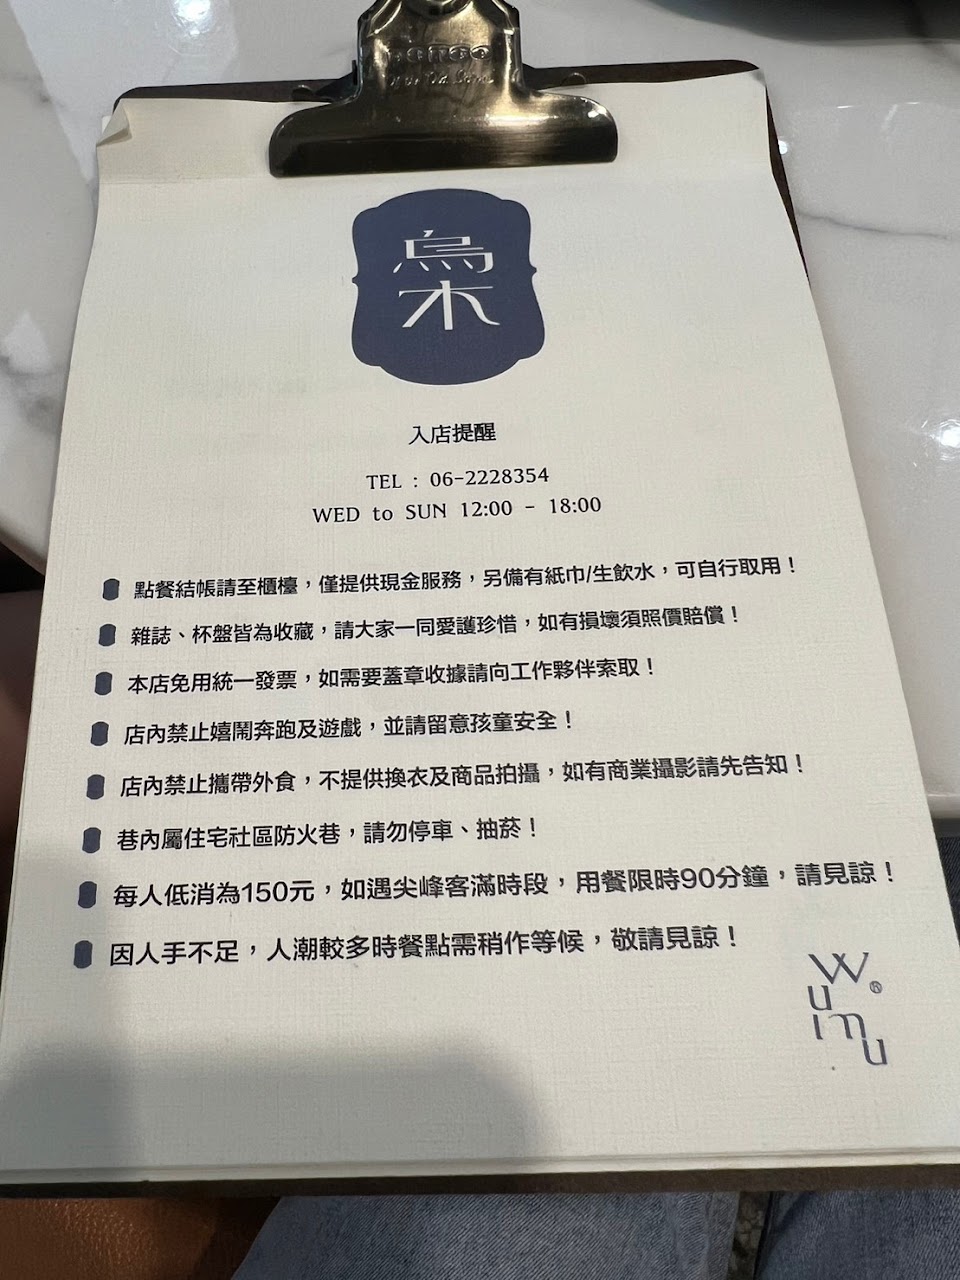 烏
木
入店提醒
TEL : 06-2228354
WED to SUN 12:00 - 18:00
點餐結帳請至櫃檯，僅提供現金服務，另備有紙巾/生飲水，可自行取用！
雜誌、杯盤皆為收藏，請大家一同愛護珍惜，如有損壞須照價賠償！
本店免用統一發票，如需要蓋章收據請向工作夥伴索取！
店內禁止嬉鬧奔跑及遊戲，並請留意孩童安全！
店內禁止攜帶外食，不提供換衣及商品拍攝，如有商業攝影請先告知！
巷內屬住宅社區防火巷，請勿停車、抽菸！
每人低消為150元，如遇尖峰客滿時段，用餐限時90分鐘，請見諒！
因人手不足，人潮較多時餐點需稍作等候，敬請見諒！
Wu mu®